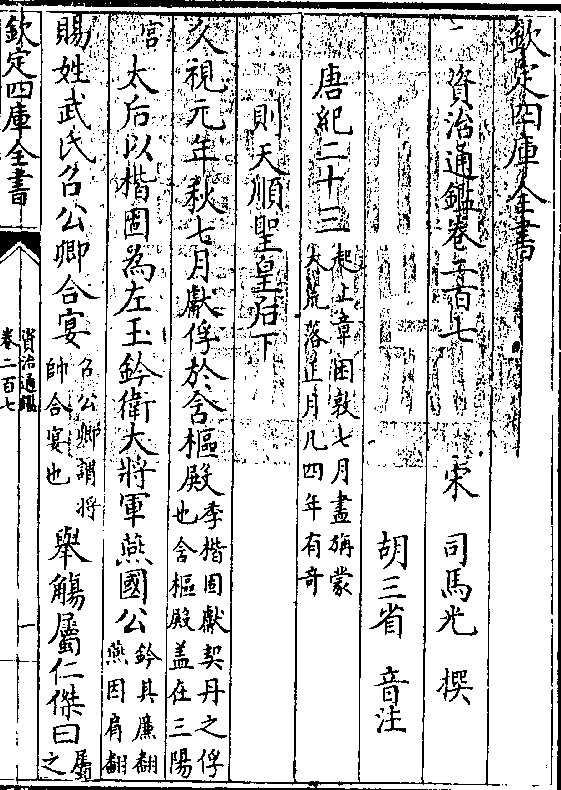 欽定四庫全書
資治通鑑卷二百七
宋 司馬光 撰
胡三省 音注
唐紀二十三
起上章困敦七月盡旃蒙
大荒落正月凡四年有奇
則天順聖皇后下
久視元年秋七月獻俘於含樞殿
李楷固獻契丹之俘
也含樞殿盖在三陽
宫
太后以楷固為左玉鈐衛大將軍燕國公
鈐其廉翻
燕因肩翻
賜姓武氏召公卿合宴
召公卿謂將
帥合宴也
舉觴屬仁傑曰
屬
之
欽定四庫全書
資治通鑑
卷二百七
一